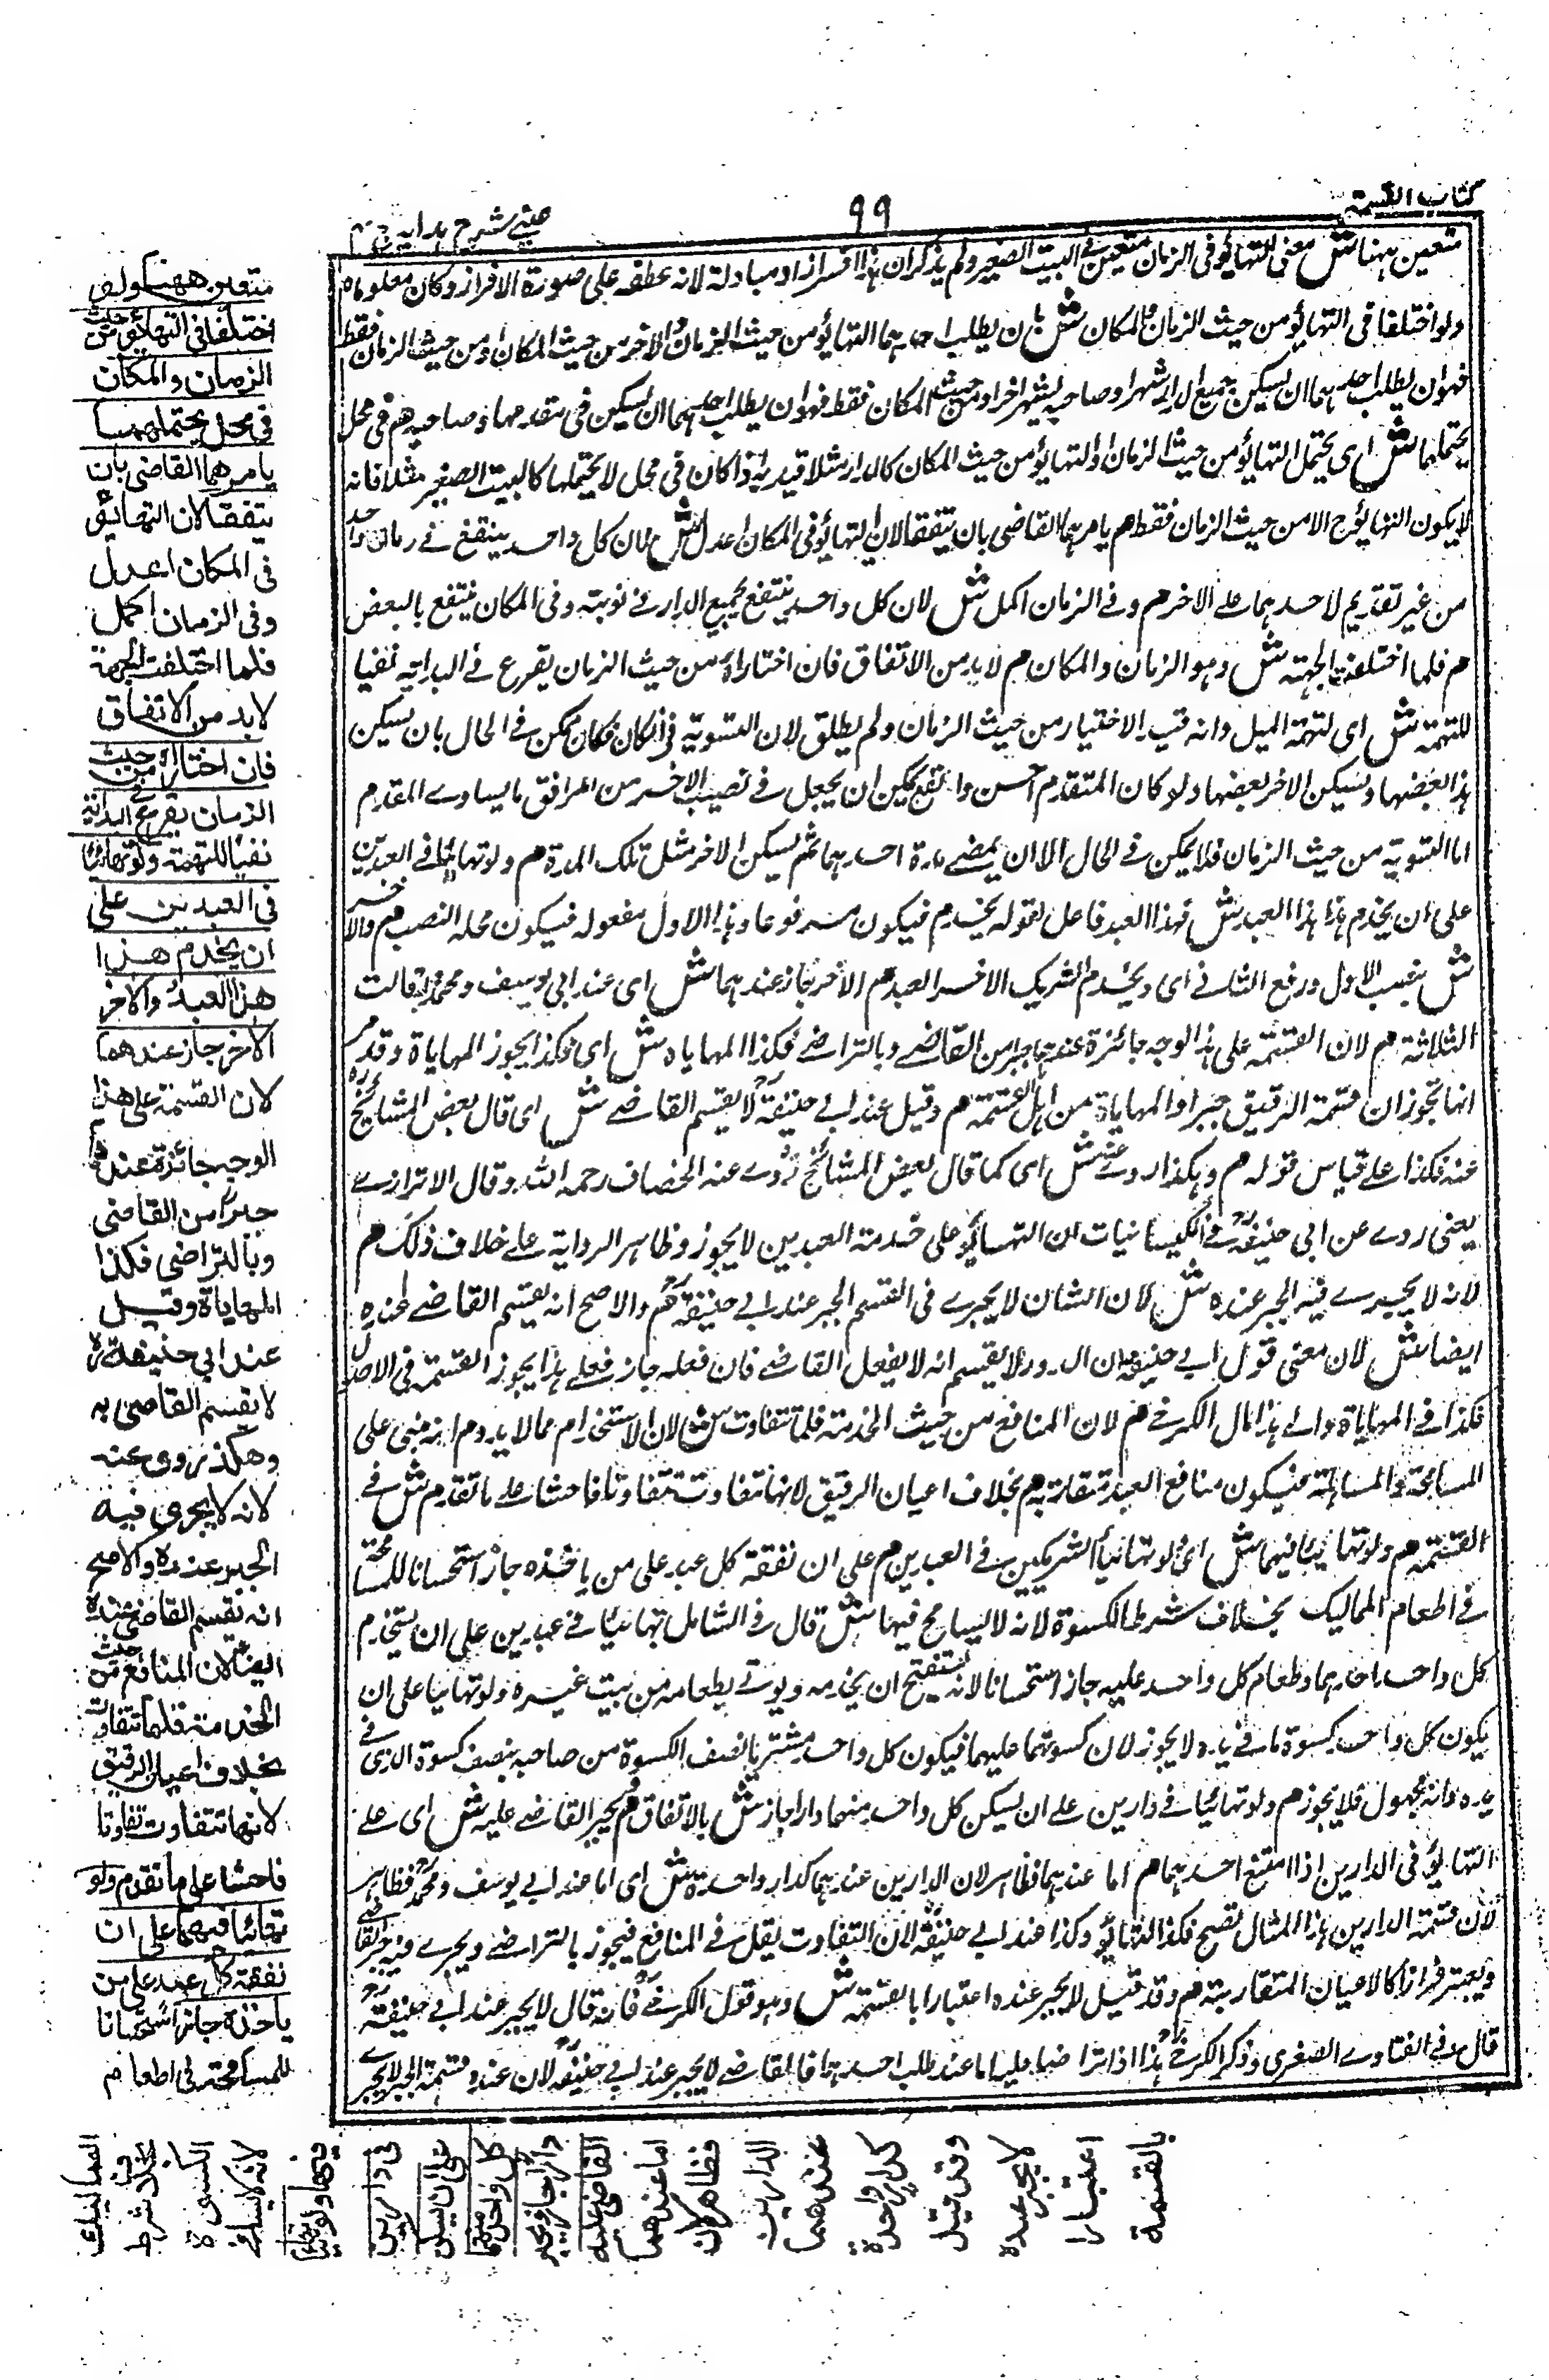 كتاب القسمة
٩٩
عيني شرح هداية ج ٤
متعين ههنا ش معنى التهايؤ في الزمان متعين في البيت الصغير ولم يذكر ان هذا افراز او مبادلة لانه عطف على صورة الافراز وكان معلوما م
ولو اختلفا في التهايؤ من حيث الزمان والمكان ش بان يطلب احدهما التهايؤ من حيث الزمان والآخر من حيث المكان او من حيث الزمان فقط
فهو ان يطلب احدهما ان يسكن جميع الدار شهرا وصاحبه شهرا آخر او من حيث المكان فقط فهو ان يطلب احدهما ان يسكن في مقدمها وصاحبه م في محل
يحتملهما ش اي يحتمل التهايؤ من حيث الزمان والتهايؤ من حيث المكان كالدار مثلا قيد به اذا كان في محل لا يحتملها كالبيت الصغير مثلا فانه
لا يكون التهايؤ ح الا من حيث الزمان فقط م يامرهما القاضي بان يتفقا لان التهايؤ في المكان اعدل ش لان كل واحد ينتفع في زمان واحد
من غير تقديم لاحدهما على الآخر م وفي الزمان اكمل ش لان كل واحد ينتفع بجميع الدار في نوبته وفي المكان ينتفع بالبعض
م فلما اختلفت الجهة ش وهو الزمان والمكان م لا بد من الاتفاق فان اختاراه من حيث الزمان يقرع في البداية نفيا
للتهمة ش اي لتهمة الميل وانه قيد الاختيار من حيث الزمان ولم يطلق لان التسوية في المكان فكان يمكن في الحال بان يسكن
هذا بعضها ويسكن الآخر بعضها ولو كان المتقدم احسن وانفع يمكن ان يجعل في نصيب الآخر من المرافق ما يساوي المقدم
اما التسوية من حيث الزمان فلا يمكن في الحال الا ان يمضي مدة احدهما ثم يسكن الآخر مثل تلك المدة م ولو تهايئا في العبدين
على ان يخدم هذا هذا العبد ش فهذا العبد فاعل لقوله يخدم فيكون مرفوعا وهذا الاول مفعوله فيكون محله النصب م والآخر
ش بنصب الاول ورفع الثاني اي ويخدم الشريك الآخر العبد م الآخر جاز عندهما ش اي عند ابي يوسف ومحمد وبه قالت
الثلاثة م لان القسمة على هذا الوجه جائزة عندهما جبرا من القاضي وبالتراضي فكذا المهاياة ش اي فكذا يجوز المهاياة وقد مر
انها تجوز ان قسمة الرقيق جبرا والمهاياة من اهل القسمة م وقيل عند ابي حنيفة لا يقسم القاضي ش اي قال بعض المشائخ
عنه فكذا على قياس قوله م وهكذا روي عنه ش اي كما قال بعض المشائخ روى عنه الخصاف رحمه الله وقال الاترازي
يعني روي عن ابي حنيفة في الكيسانيات ان التهايؤ على خدمة العبدين لا يجوز وظاهر الرواية على خلاف ذلك م
لانه لا يجري فيه الجبر عنده ش لان الشان لا يجري في القسم الجبر عند ابي حنيفة م والاصح انه يقسم القاضي عنده
ايضا ش لان معنى قول ابي حنيفة ان الدور لا يقسم انه لا يفعل القاضي فان فعله جاز فعلى هذا يجوز القسمة في الاصل
فكذا في المهاياة والى هذا مال الكرخي م لان المنافع من حيث الخدمة قلما تتفاوت ش لان الاستخدام مما لا يدوم انه مبني على
المسامحة والمساهلة فيكون منافع العبد متقاربة م بخلاف اعيان الرقيق لانها تتفاوت تفاوتا فاحشا على ما تقدم ش في
القسمة م ولو تهايئا فيهما ش اي لو تهايأ الشريكين في العبدين م على ان نفقة كل عبد على من ياخذه جاز استحسانا للمسامحة
في اطعام المماليك بخلاف شرط الكسوة لانه لا يسامح فيها ش قال في الشامل تهايئا في عبدين على ان يستخدم
كل واحد احدهما وطعام كل واحد عليه جاز استحسانا لانه يستقبح ان يخدمه ويؤتى بطعامه من بيت غيره ولو تهايئا على ان
يكون كل واحد كسوة ما في يده لا يجوز لان كسوتهما عليهما فيكون كل واحد مشتريا نصف الكسوة من صاحبه بنصف كسوة الذي في
يده وانه مجهول فلا يجوز م ولو تهايئا في دارين على ان يسكن كل واحد منهما دارا جاز ش بالاتفاق م ويجبر القاضي عليه ش اي على
التهايؤ في الدارين اذا امتنع احدهما م اما عندهما فظاهر لان الدارين عندهما كدار واحدة ش اي اما عند ابي يوسف ومحمد فظاهر
لان قسمة الدارين هذا المثال تصح فكذا التهايؤ وكذا عند ابي حنيفة لان التفاوت يقل في المنافع فيجوز بالتراضي ويجري فيه جبر القاضي
ويعتبر افرازا كالاعيان المتقاربة م وقد قيل لا يجبر عنده اعتبارا بالقسمة ش وهو قول الكرخي فانه قال لا يجبر عند ابي حنيفة
قال في الفتاوى الصغرى وذكر الكرخي هذا اذا تراضيا عليه اما عند طلب احدهما فالقاضي لا يجبر عند ابي حنيفة لان عنده قسمة الجبر لا يجبر
متعين ههنا ولو
اختلفا في التهايؤ من حيث
الزمان والمكان
في محل يحتملهما
يامرهما القاضي بان
يتفقا لان التهائؤ
في المكان اعدل
وفي الزمان اكمل
فلما اختلفت الجهة
لا بد من الاتفاق
فان اختاراه من حيث
الزمان يقرع في البداية
نفيا للتهمة ولو تهائئا
في العبدين على
ان يخدم هذا
هذا العبد والاخر
الآخر جاز عندهما
لان القسمة على هذا
الوجه جائزة عندهما
جبرا من القاضي
وبالتراضي فكذا
المهاياة وقيل
عند ابي حنيفة رح
لا يقسم القاضي به
وهكذا روى عنه
لانه لا يجرى فيه
الجبر عنده والاصح
انه يقسم القاضي عنده
ايضا لان المنافع من حيث
الخدمة قلما تتفاوت
بخلاف اعيان الرقيق
لانها تتفاوت تفاوتا
فاحشا على ما تقدم ولو
تهائيا فيهما على ان
نفقة كل عبد على من
ياخذه جاز استحسانا
للمسامحة في اطعام
المماليك
بخلاف شرط
الكسوة
لانه لا يسامح
فيها ولو تهايئا
في دارين
على ان يسكن
كل واحد منهما
دارا جاز ويجبر
القاضي عليه
اما عندهما
فظاهر لان
الدارين
عندهما
كدار واحدة
وقد قيل
لا يجبر عنده
اعتبارا
بالقسمة